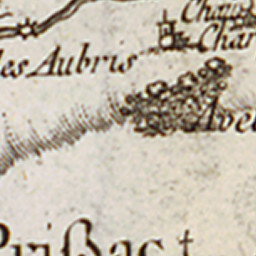 Chau
Char
les Aubris
Avel
Prißac